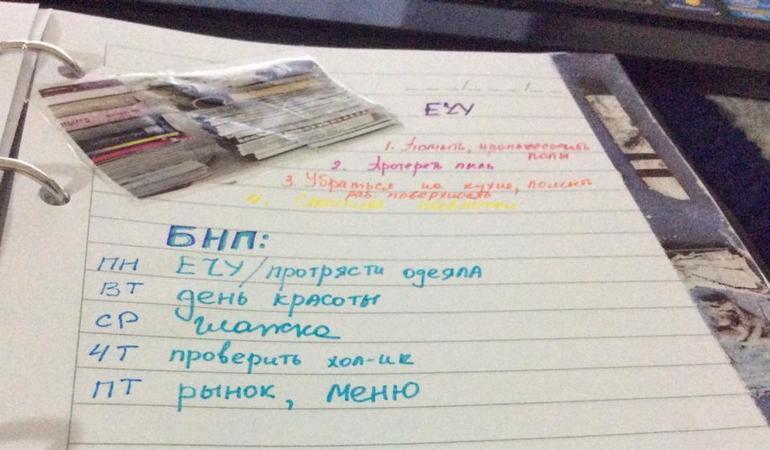 ЕЧУ
1. Помыть, пропылесосить
полы
2. Протереть пыль
3. Убраться на кухне, помыть
раб поверхность
4.
БНП:
ПН ЕЧУ/протрясти одеяла
ВТ день красоты
СР глажка
ЧТ проверить хол-ик
ПТ рынок, меню